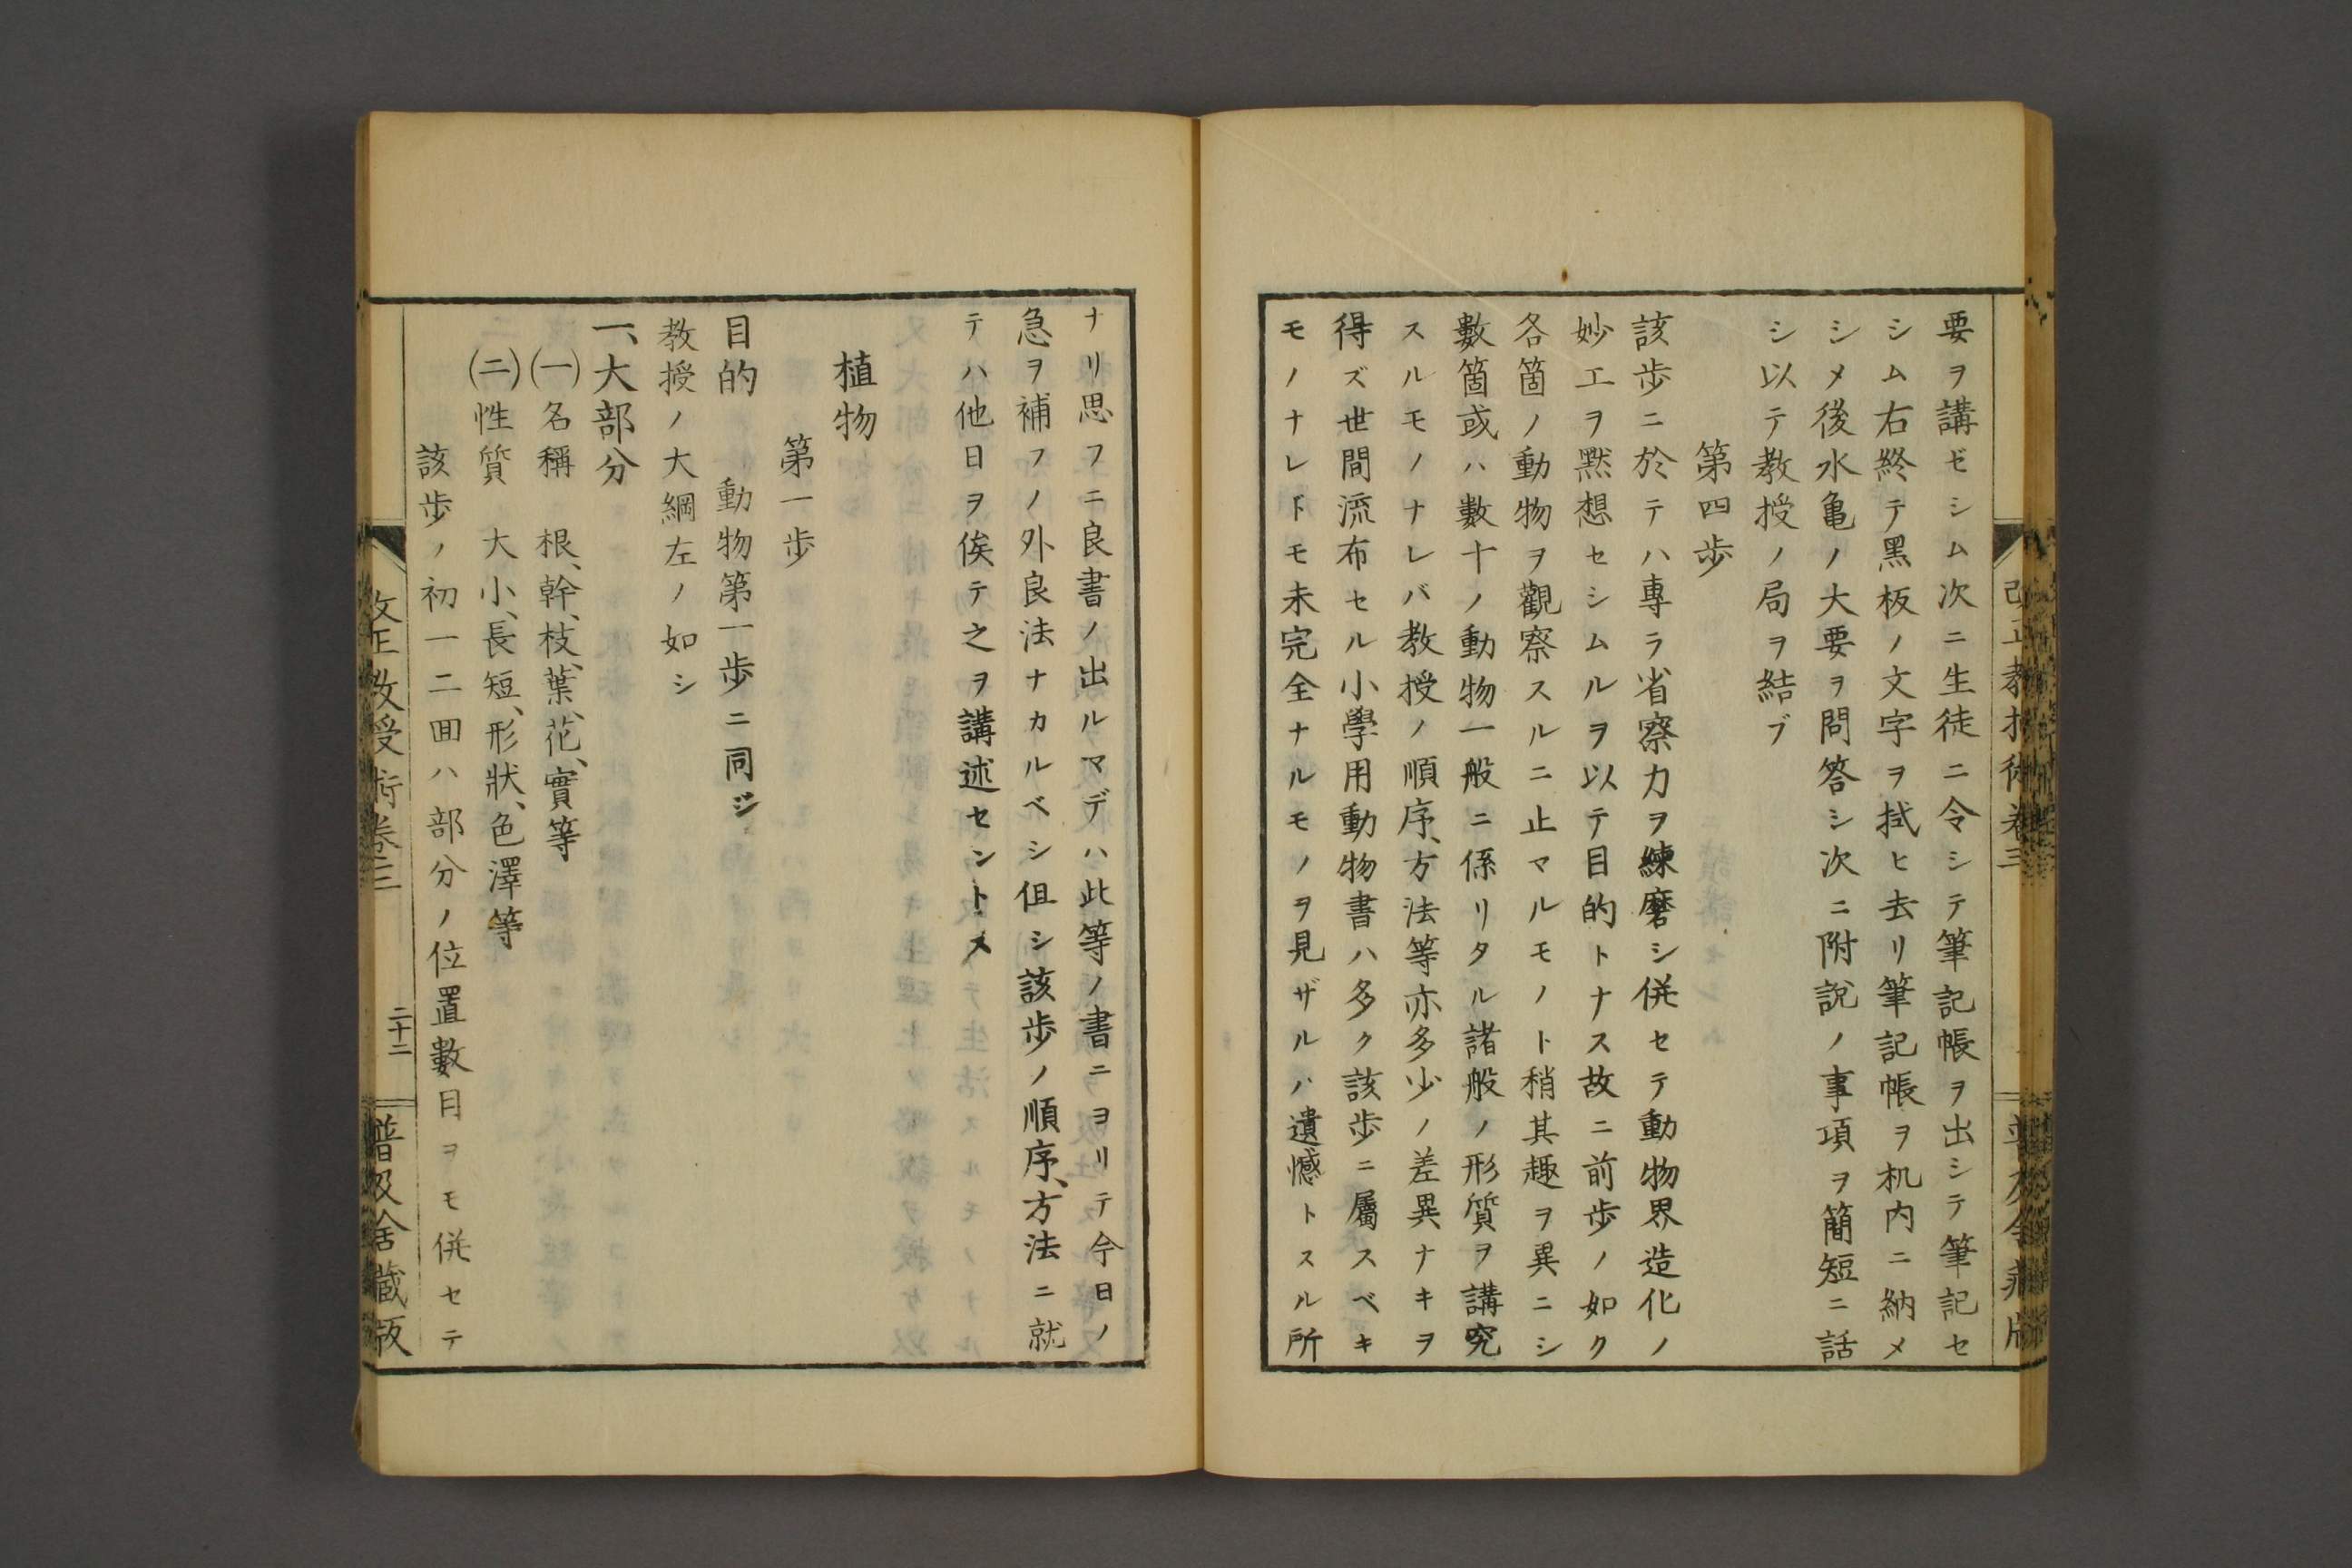 要ヲ講ゼシム次ニ生徒ニ令シテ筆記帳ヲ出シテ筆記セ
シム右終テ黑板ノ文字ヲ拭ヒ去リ筆記帳ヲ机内ニ納メ
シメ後水亀ノ大要ヲ問答シ次ニ附説ノ事項ヲ簡短ニ話
シ以テ教授ノ局ヲ結ブ
第四歩
該歩ニ於テハ專ラ省察力ヲ練磨シ併セテ動物界造化ノ
妙工ヲ默想セシムルヲ以テ目的トナス故ニ前歩ノ如ク
各箇ノ動物ヲ觀察スルニ止マルモノト稍其趣ヲ異ニシ
數箇或ハ數十ノ動物一般ニ係リタル諸般ノ形質ヲ講究
スルモノナレバ教授ノ順序、方法等亦多少ノ差異ナキヲ
得ズ世間流布セル小學用動物書ハ多ク該歩ニ屬スベキ
モノナレドモ未完全ナルモノヲ見ザルハ遺憾トスル所
ナリ思フニ良書ノ出ルマデハ此等ノ書ニヨリテ今日ノ
急ヲ補フノ外良法ナカルベシ伹シ該歩ノ順序、方法ニ就
テハ他日ヲ俟テ之ヲ講述セントス
植物
第一歩
目的 動物第一歩ニ同ジ
教授ノ大綱左ノ如シ
一、大部分
(一)名稱 根、幹、枝、葉、花、實等
(二)性質 大小、長短、形狀、色澤等
該歩ノ初一二囬ハ部分ノ位置數目ヲモ併セテ
改正教授術卷三
二十二
普及舍藏版